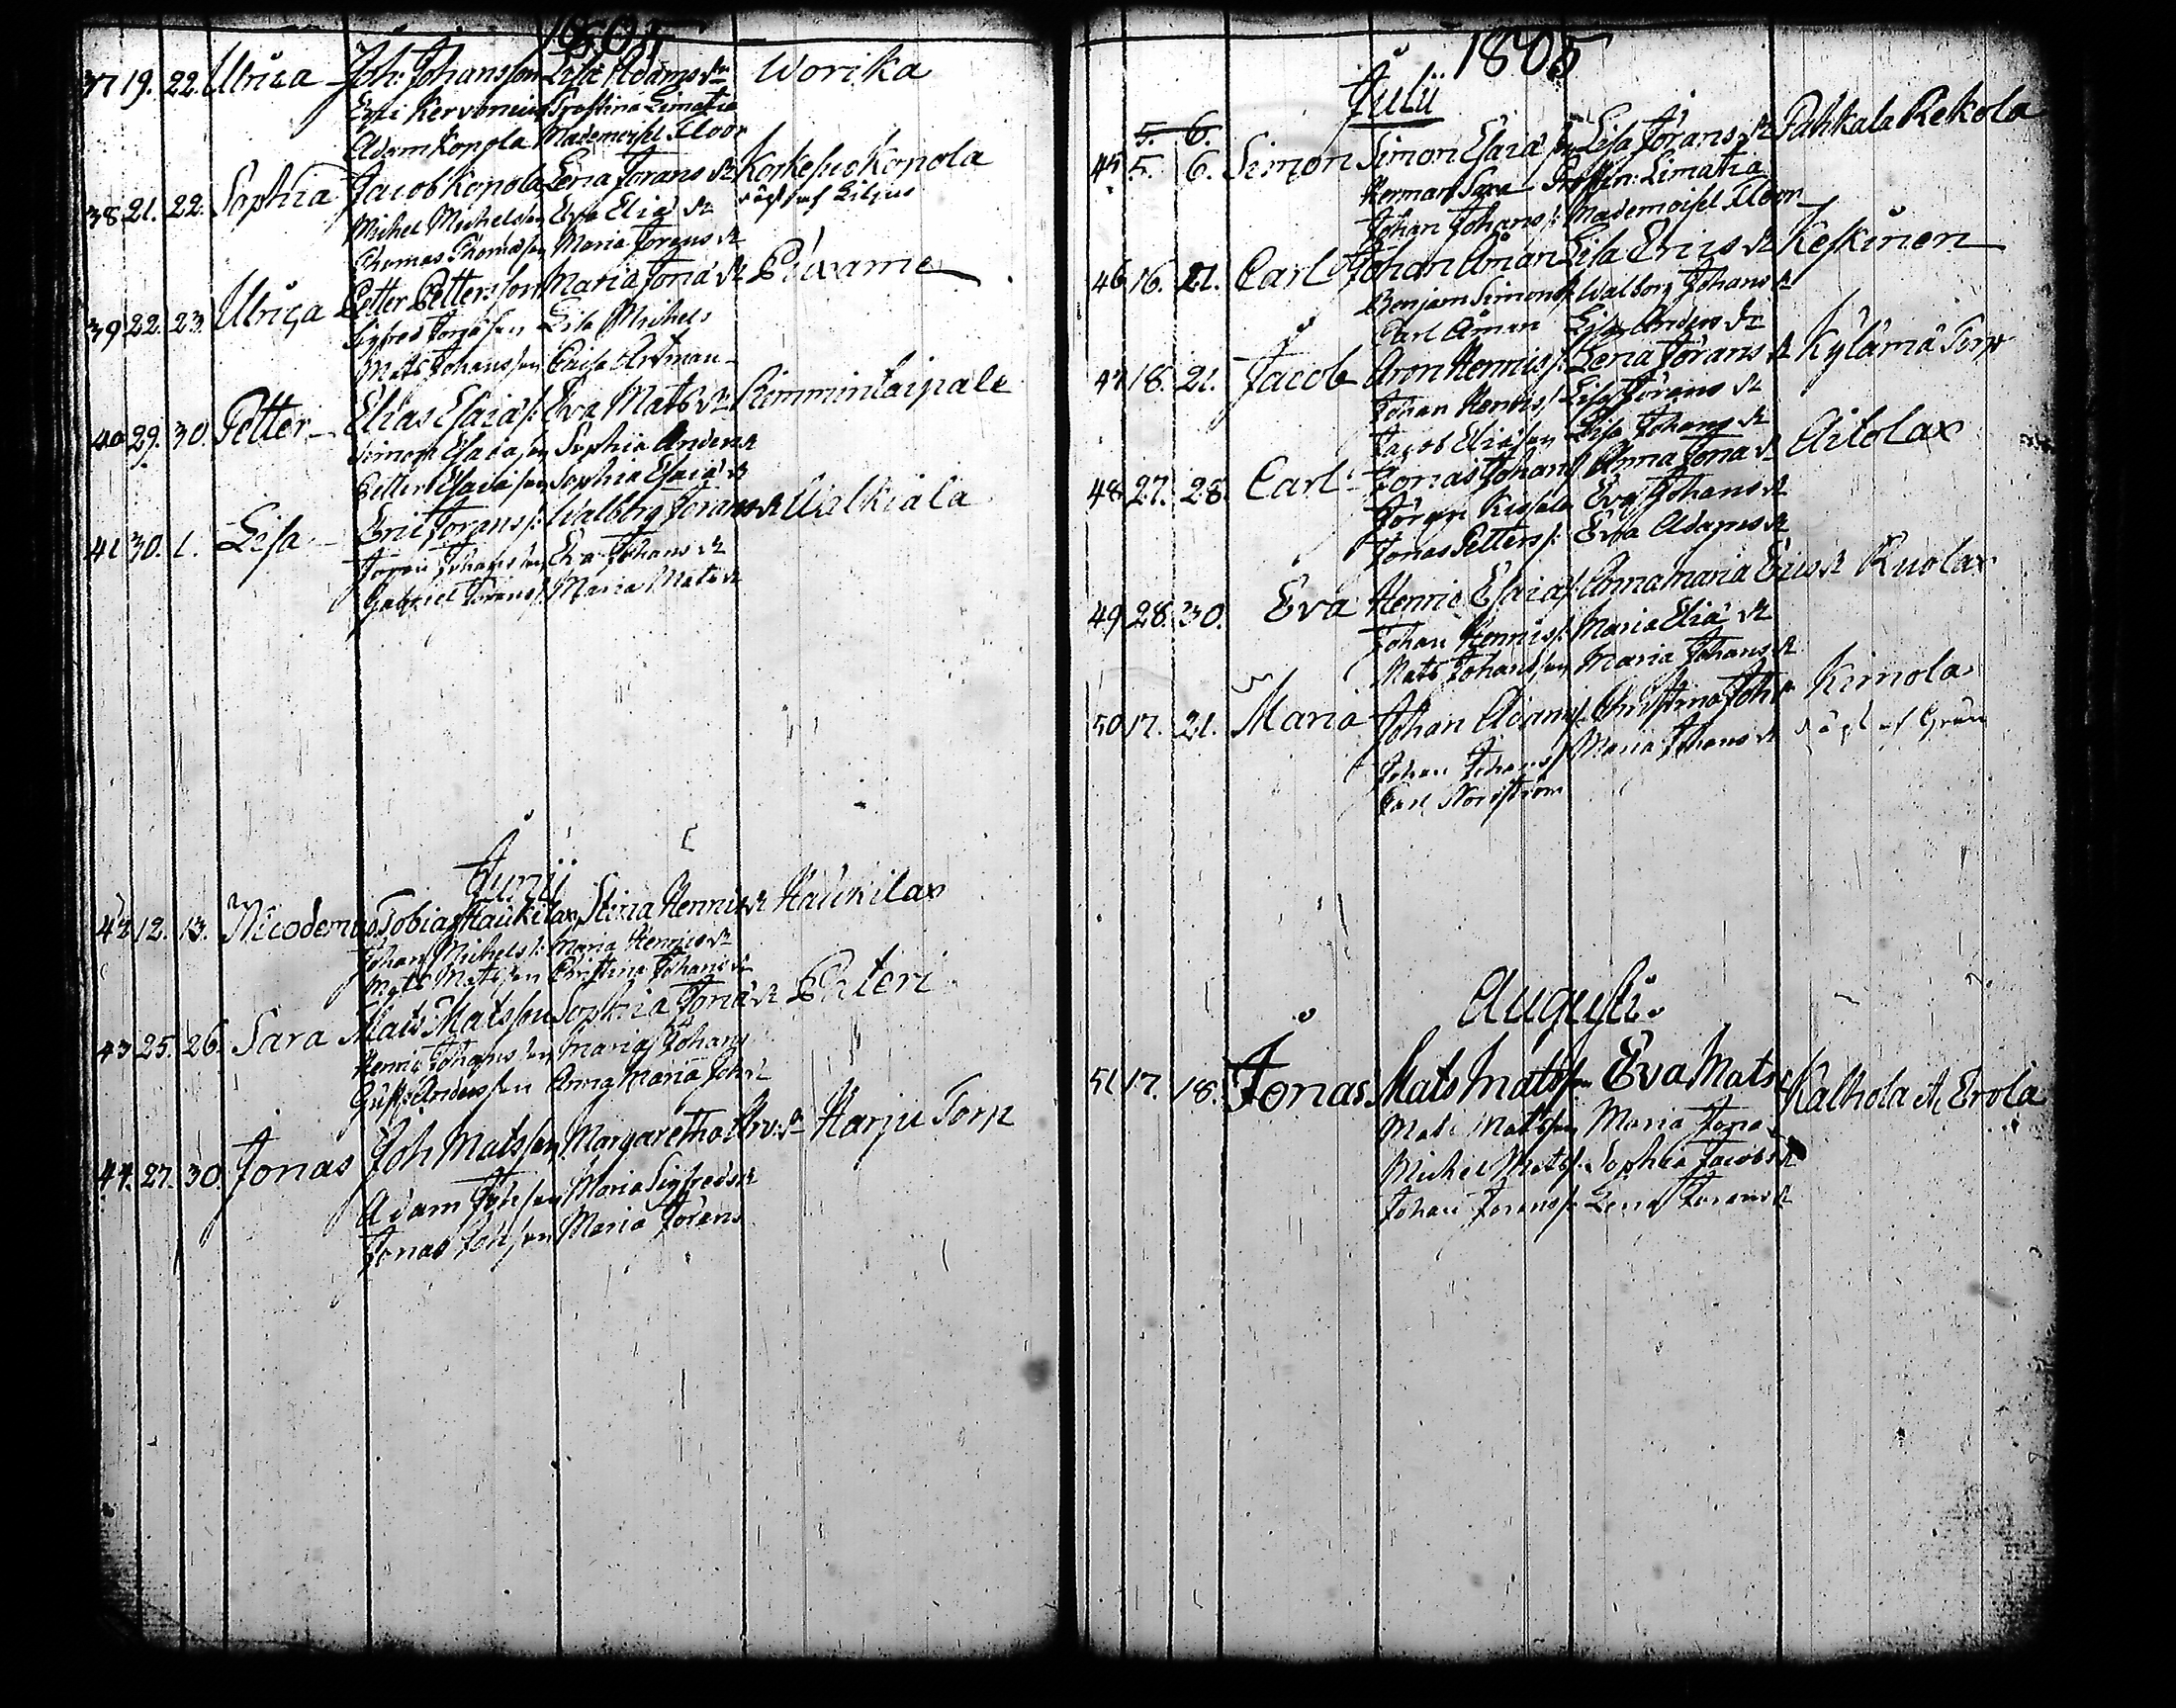 1805
37 19. 22. Ulrica Joh: Johansson Lisa Adams dr Worika
Kervonen Limatia
Adam Konola Mademoisel Floor
38 21. 22. Sophia Jacob Konola Lena Jörans dr Korkesuo Konola
Michel Michelsson Eva Elia dr
Thomas Thomasson Maria Jörans dr
39 22. 23. Ulrica Petter Pettersson Maria Jona dr
Sigfred Jonasson Lisa Michels
Mats Johansson Caisa Artman
40 29. 30. Petter Elias Esaias: Eva Mats dr Kimmintaipale
Simon Esaiasson Sophia Anders dr
Petter Esaiasson Sophia Esaia dr
41 30. 1. Lisa Eric Jörans: Walborg Jörans dr Walkiala
Jöran Johansson Eva Johans dr
Gabriel Jörans: Maria Mats dr
Junij
42 12. 13. Nicodemus Tobias Haukilax Stina Henrics dr Haukilax
Johan Michels: Maria Henrics dr
Mats Matsson Christina Johans dr
43 25. 26. Sara Mats Matsson Sophia Jona dr Enteri
Henric Johansson Maria Johans
Gust: Andersson Anna Maria Joh dr
44. 27. 30. Jonas Joh Matsson Margaretha Arv: dr Harju Torp
Adam Johsson Maria Sigfreds dr
Jonas Johsson Maria Jörans
1805
Julii
5. 6.
45 5. 6. Simon Simon Esaiasson Lisa Jörans dr Pohkala Rekola
Herman Limatia
Johan Johans: Mademoisel Floor
46 16. 21. Carl Johan Åman Lisa Erics dr Keskinen
Benjam Simons: Walborg Johans dr
Carl Åman Lisa Anders dr
47 18. 21. Jacob Aron Henrics: Lena Jörans dr Kylämä Torp
Johan Henrics: Lisa Jörans dr
Jacob Eliasson Lisa Johans dr
48 27. 28. Carl Jonas Johans: Anna Jona dr Aitolax
Jöran Eva Johans dr
Jonas Petters: Eva Adams dr
49 28. 30. Eva Henric Esaias: Anna Maria Erics dr Ruolax
Johan Henrics: Maria Elia dr
Mats Johansson Maria Johans dr
50 17. 21. Maria Johan Adams: Christina Joh dr Kimola
Johan Johans: Maria Johans dr
Carl Nordström
Augusti.
51 17. 18. Jonas Mats Matsson Eva Mats Kalhola A. Erola
Mats Matsson Maria Jona
Michel Mats: Sophia Jacobs dr
Johan Jörans: Lena Jörans dr